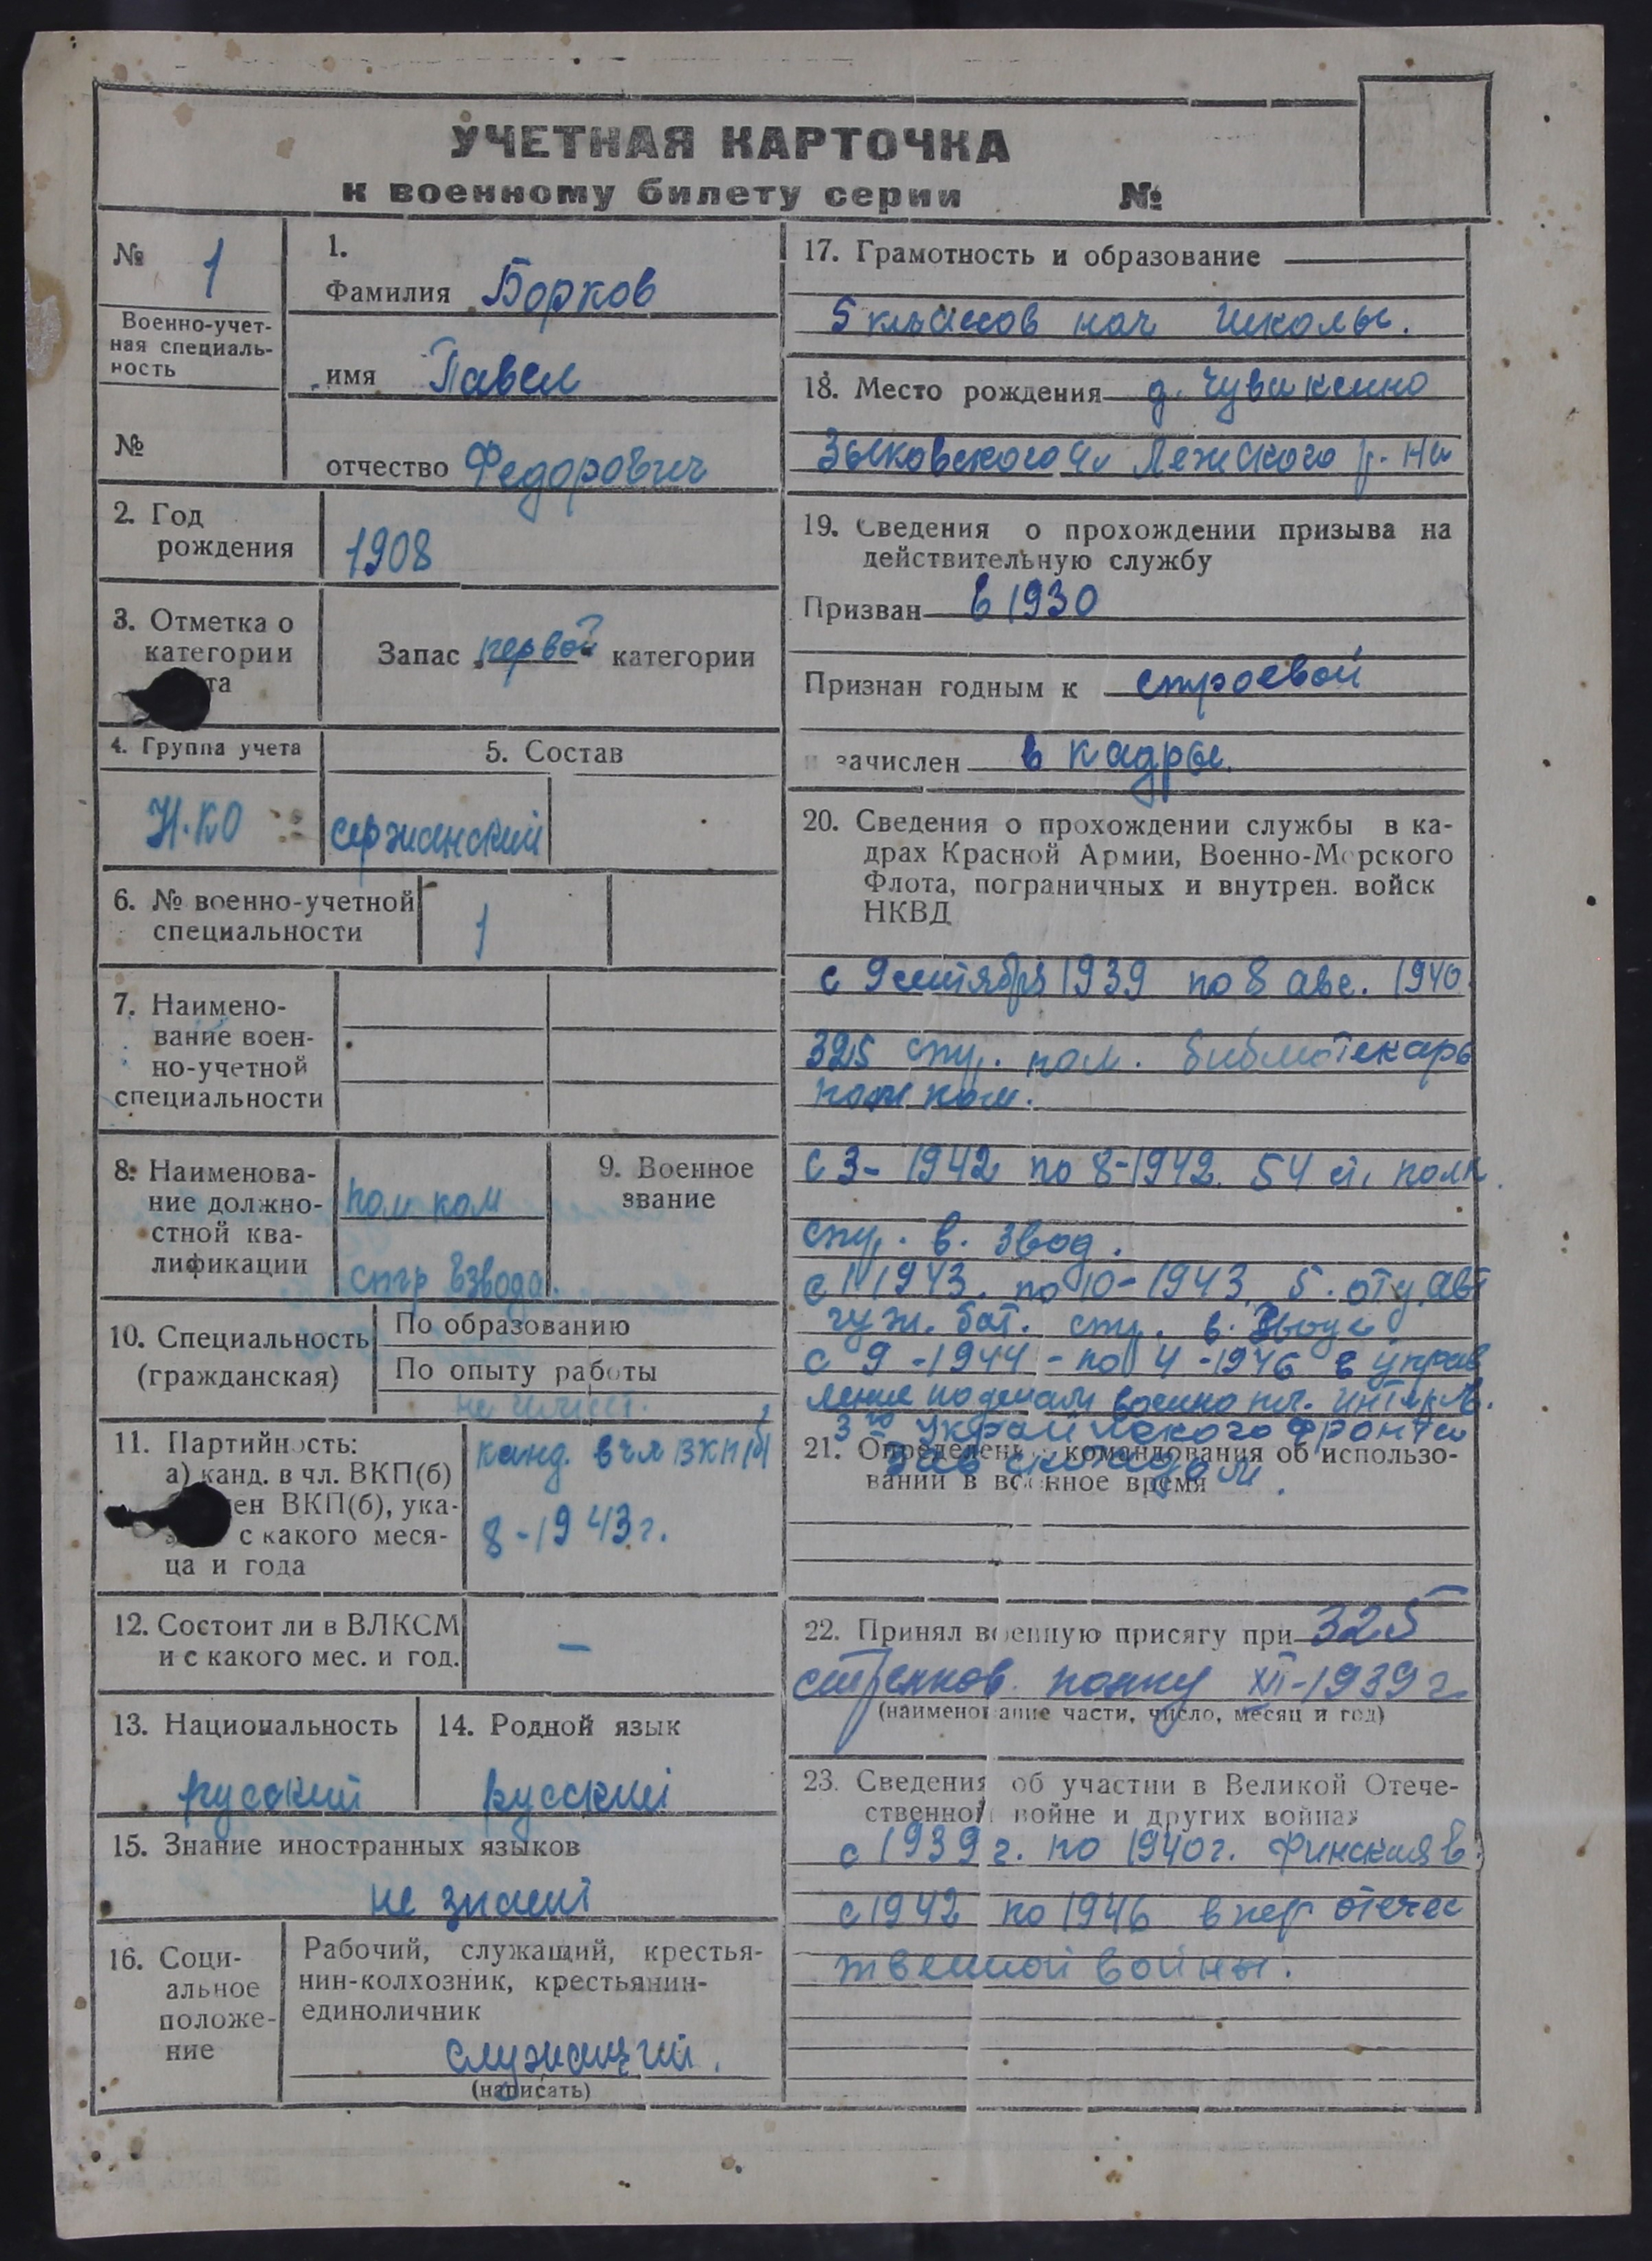 УЧЕТНАЯ КАРТОЧКА
к военному билету серии №
№ 1
Военно-учет-
ная специаль-
ность
№
1.
Фамилия Борков
имя Павел
отчество Федорович
2. Год
рождения
1908
3. Отметка о
категории
та
Запас первой категории
4. Группа учета
Н.КО
5. Состав
сержанский
6. № военно-учетной
специальности
1
7. Наимено-
вание воен-
но-учетной
специальности
8. Наименова-
ние должно-
стной ква-
лификации
пом ком
стр взвода.
9. Военное
звание
10. Специальность
(гражданская)
По образованию
По опыту работы
не имеет.
11. Партийность:
а) канд. в чл. ВКП(б)
ен ВКП(б), ука-
с какого меся-
ца и года
канд. в чл ВКП(б)
8-1943 г.
12. Состоит ли в ВЛКСМ
и с какого мес. и год.
—
13. Национальность
русский
14. Родной язык
русский
15. Знание иностранных языков
не знает
16. Соци-
альное
положе-
ние
Рабочий, служащий, крестья-
нин-колхозник, крестьянин-
единоличник
служащий.
(написать)
17. Грамотность и образование
5 классов нач школы.
18. Место рождения д. Чувикенно
Зыковского Лежского р-на
19. Сведения о прохождении призыва на
действительную службу
Призван в 1930
Признан годным к строевой
и зачислен в кадры.
20. Сведения о прохождении службы в ка-
драх Красной Армии, Военно-Морского
Флота, пограничных и внутрен. войск
НКВД
с 9 сентября 1939 по 8 авг. 1940
325 стр. пол. библиотекарь
с 3-1942 по 8-1942. 54 полк.
стр. в. звод.
1943. по 10-1943. 5.
бат. стр. в.
с 9-1944-по 4-1946 в управ
ление по делам военно пл. интерн.
3го Украинского фронта
21. Определение командования об использо-
вании в военное время
зав складом.
22. Принял военную присягу при 325
стрелков. полку XII-1939 г
(наименование части, число, месяц и год)
23. Сведения об участии в Великой Отече-
ственной войне и других войнах
с 1939 г. по 1940 г. Финская в.
с 1942 по 1946 в пер отечес
твенной войны.